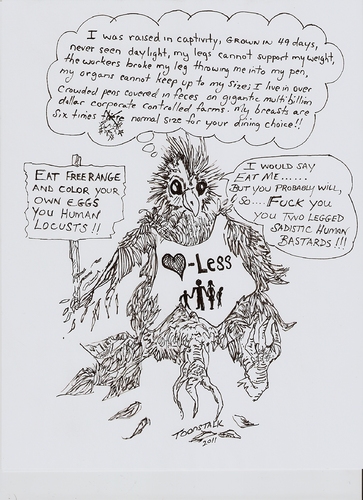 I was raised in captivity, GROWN IN 49 days,
never seen daylight, my legs cannot support my weight,
the workers broke my leg throwing me into my pen,
my organs cannot keep up to my size; I live in over
crowded pens covered in feces on gigantic multi billion
dollar corporate controlled farms. my breasts are
six times there normal size for your dining choice!!
EAT FREE RANGE
AND COLOR YOUR
OWN EGGS
YOU HUMAN
LOCUSTS!!
I WOULD SAY
EAT ME......
BUT YOU PROBABLY WILL,
SO.... FUCK YOU
YOU TWO LEGGED
SADISTIC HUMAN
BASTARDS!!!
-Less
TOONSTALK
2011